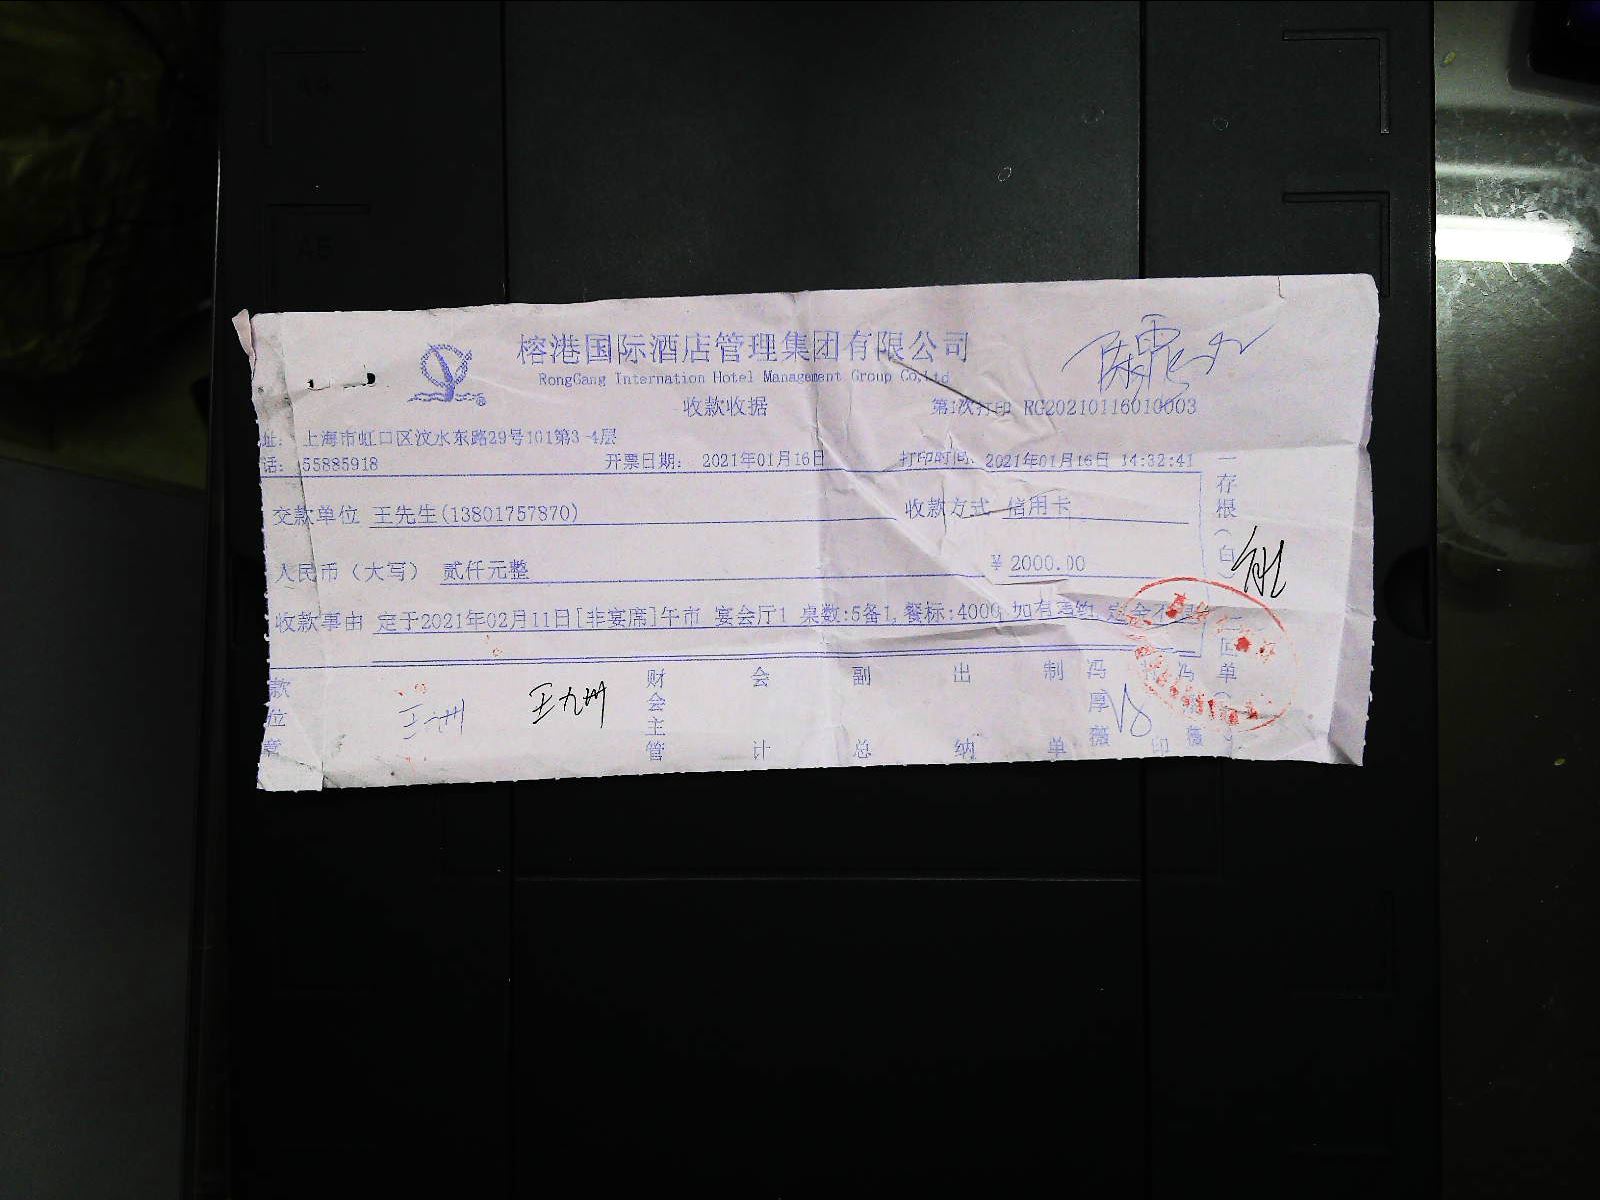 榕港国际酒店管理集团有限公司
RongGang Internation Hotel Management Group Co,Ltd
收款收据
第1次打印 RC20210116010003
址: 上海市虹口区汶水东路29号101第3-4层
话: 55885918 开票日期: 2021年01月16日 打印时间: 2021年01月16日 14:32:41
交款单位 王先生(13801757870) 收款方式 信用卡
人民币（大写） 贰仟元整 ¥ 2000.00
收款事由 定于2021年02月11日[非宴席]午市 宴会厅1 桌数:5备1,餐标:4000,如有违约,定金不退
款位章 王九洲 王九州 财会主管 会计 副总 出纳 制单 冯厚薇 印 冯 薇
一存根(白)
二回单(